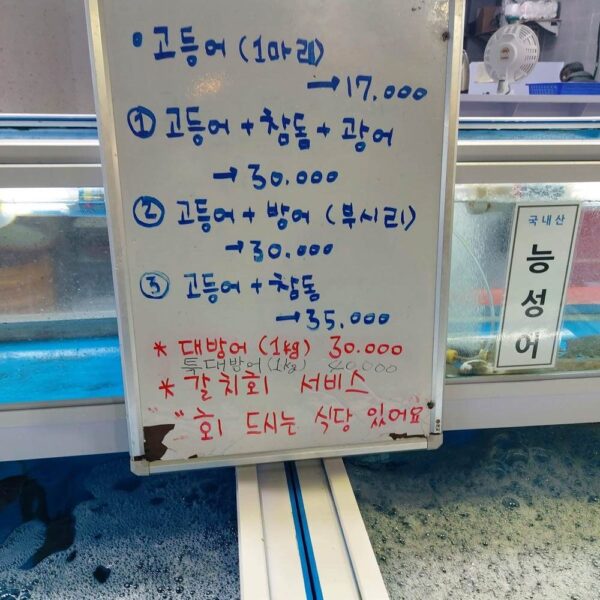 • 고등어 (1마리)
→ 17.000
① 고등어 + 참돔 + 광어
→ 30.000
② 고등어 + 방어 (부시리)
→ 30.000
③ 고등어 + 참돔
→ 35.000
* 대방어 (1kg) 30.000
특대방어 (1kg) 40,000
* 갈치회 서비스
" " 회 드시는 식당 있어요
국내산
능성어